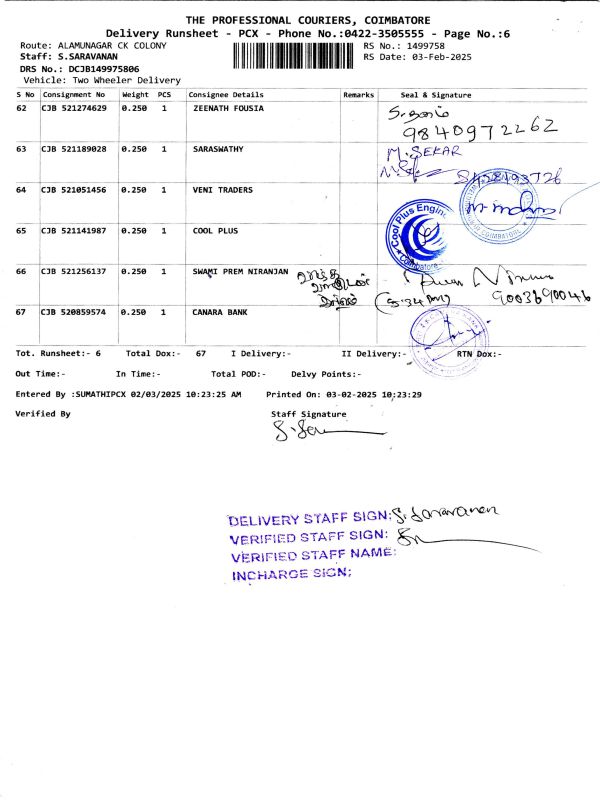 THE PROFESSIONAL COURIERS, COIMBATORE
Delivery Runsheet - PCX - Phone No.:0422-3505555 - Page No.:6
Route: ALAMUNAGAR CK COLONY RS No.: 1499758
Staff: S.SARAVANAN RS Date: 03-Feb-2025
DRS No.: DCJB149975806
Vehicle: Two Wheeler Delivery
S No Consignment No Weight PCS Consignee Details Remarks Seal & Signature
62 CJB 521274629 0.250 1 ZEENATH FOUSIA
9840972262
63 CJB 521189028 0.250 1 SARASWATHY M. SEKAR
64 CJB 521051456 0.250 1 VENI TRADERS
COIMBATORE
65 CJB 521141987 0.250 1 COOL PLUS
Cool Plus Engine
Coimbatore
66 CJB 521256137 0.250 1 SWAMI PREM NIRANJAN
(5:34 PM) 9003690046
67 CJB 520859574 0.250 1 CANARA BANK
Tot. Runsheet:- 6 Total Dox:- 67 I Delivery:- II Delivery:- RTN Dox:-
Out Time:- In Time:- Total POD:- Delvy Points:-
Entered By :SUMATHIPCX 02/03/2025 10:23:25 AM Printed On: 03-02-2025 10:23:29
Verified By Staff Signature
DELIVERY STAFF SIGN: S. Saravanan
VERIFIED STAFF SIGN:
VERIFIED STAFF NAME:
INCHARGE SIGN: